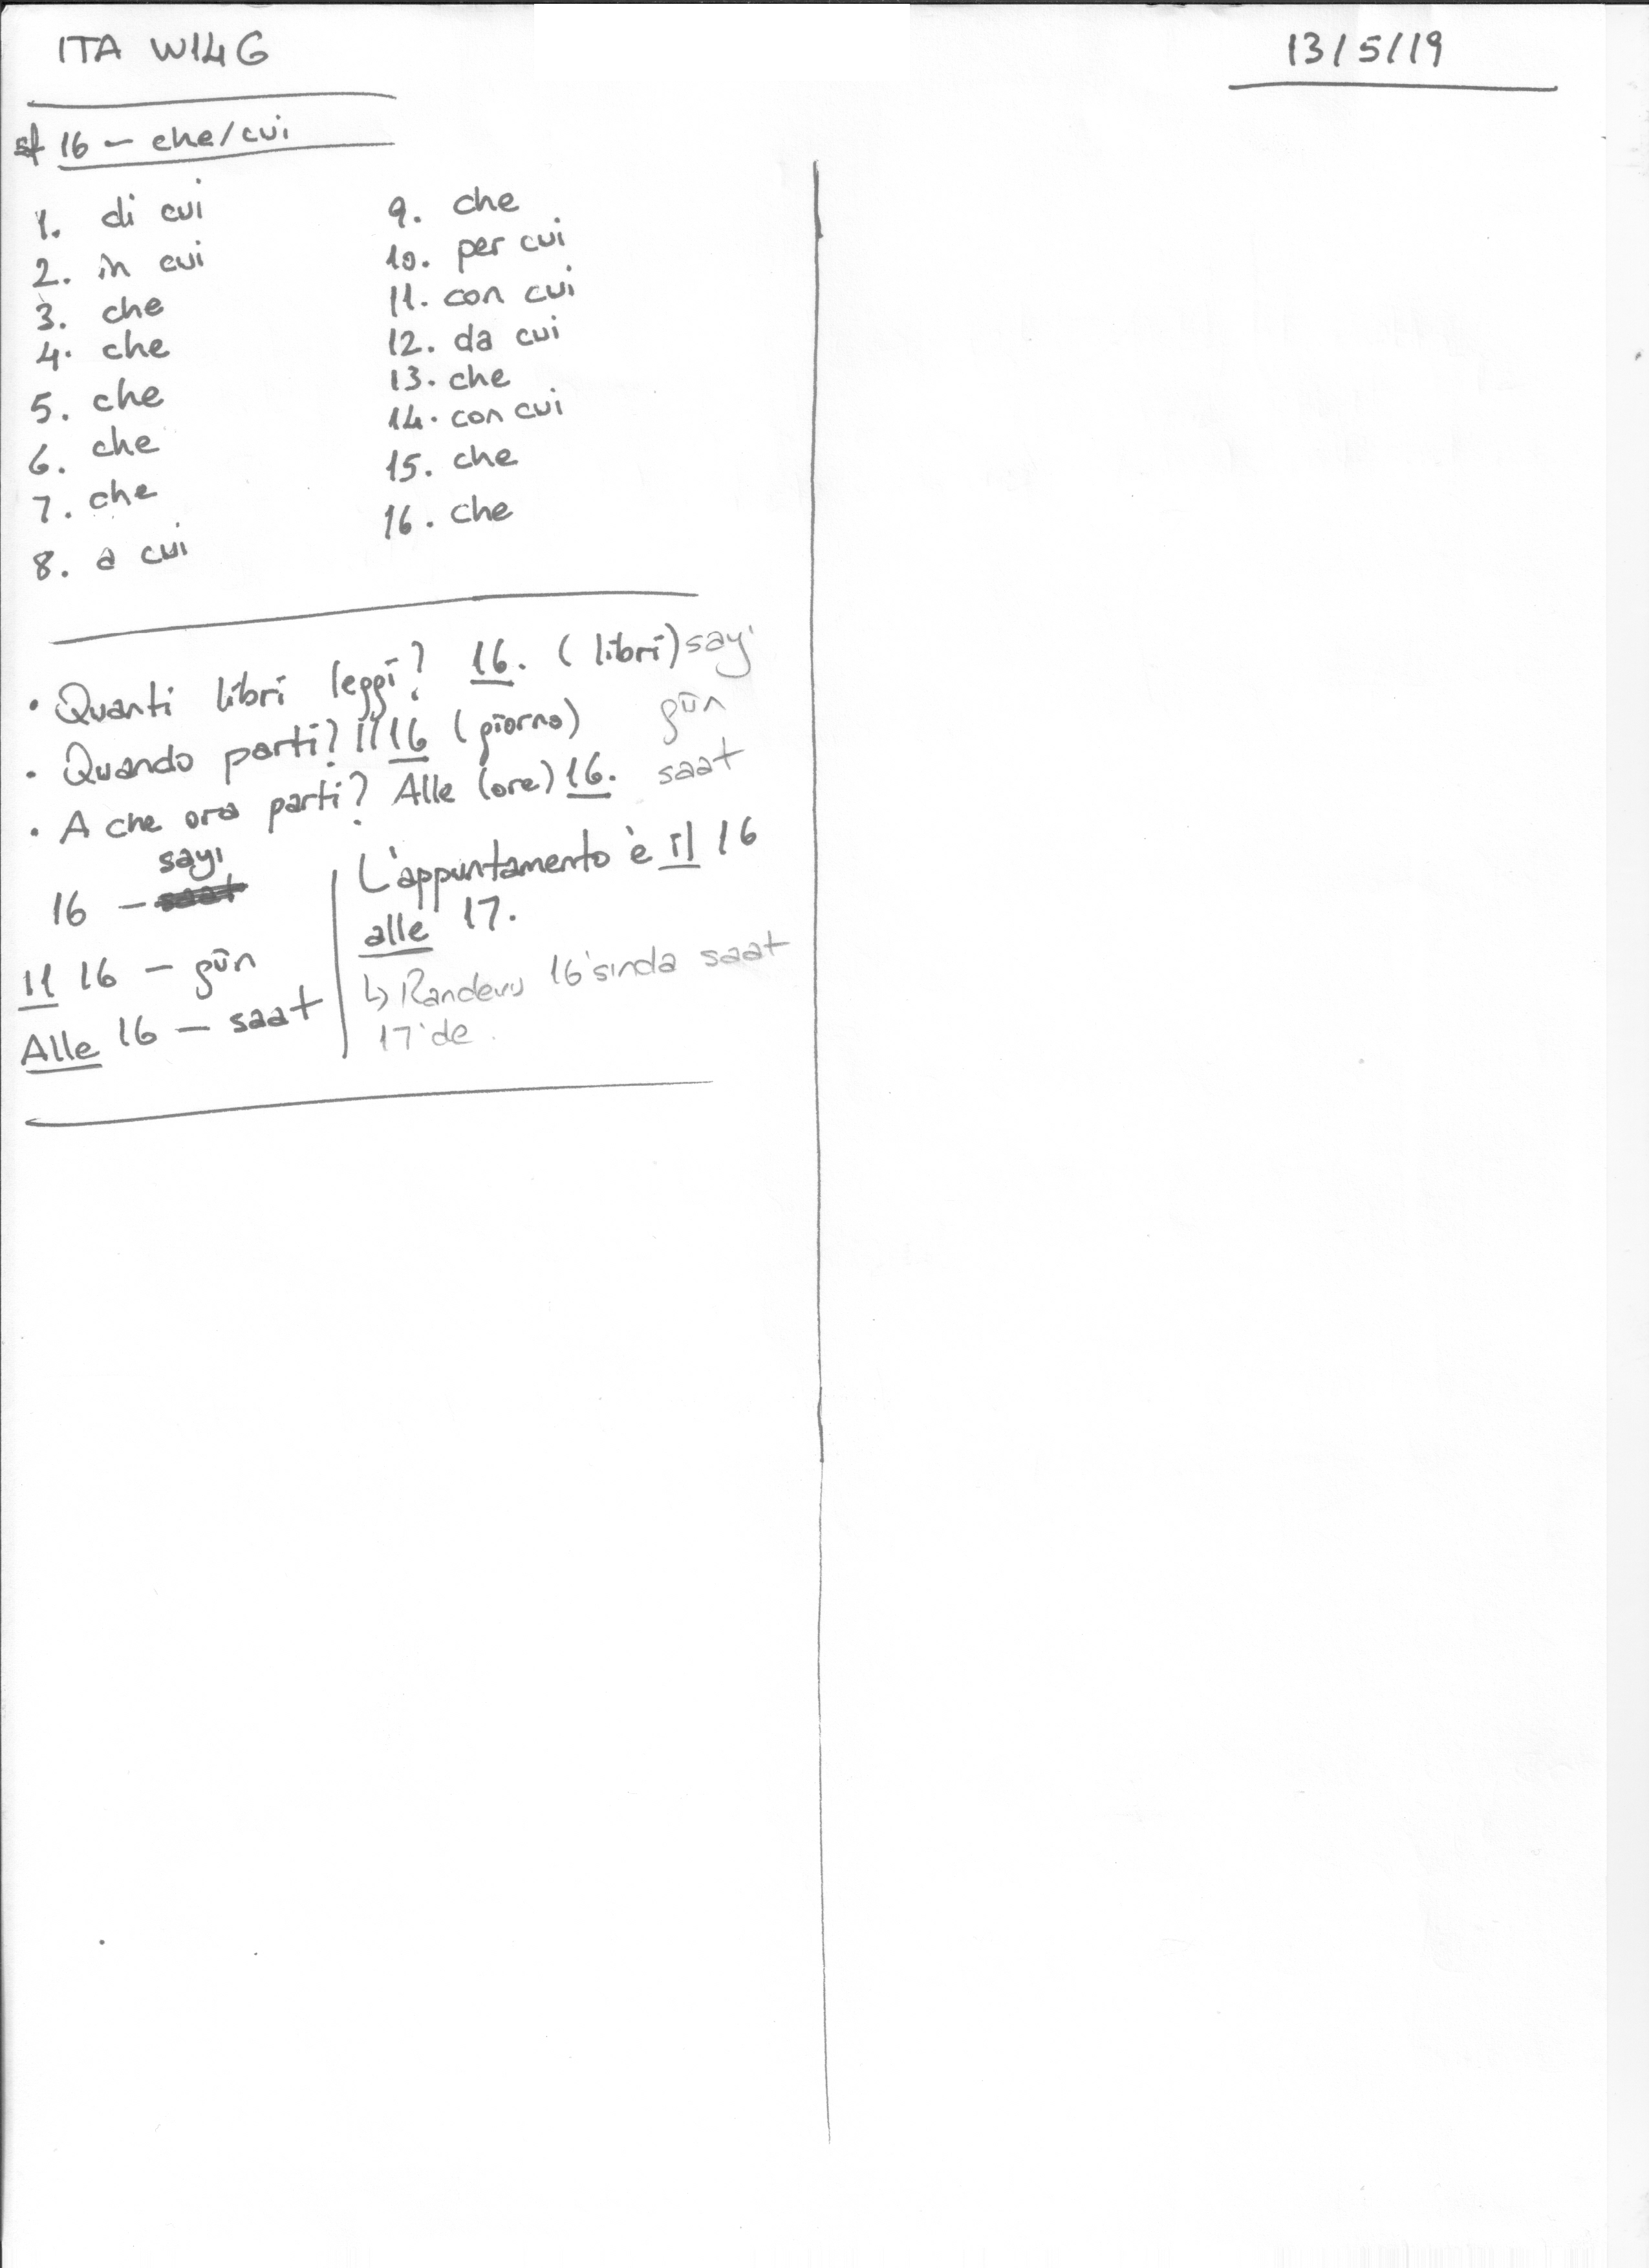 ITA W14G
13/5/19
16 - che/cui
1. di cui
2. in cui
3. che
4. che
5. che
6. che
7. che
8. a cui
9. che
10. per cui
11. con cui
12. da cui
13. che
14. con cui
15. che
16. che
• Quanti libri leggi? 16. (libri) sayı
• Quando parti? Il 16 (giorno) gün
• A che ora parti? Alle (ore) 16. saat
16 - sayı
Il 16 - gün
Alle 16 - saat
L'appuntamento è il 16
alle 17.
↳ Randevu 16'sında saat
17'de.